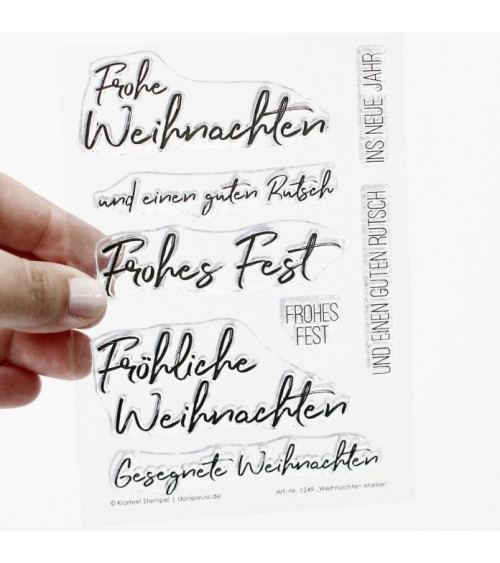 Frohe
Weihnachten
und einen guten Rutsch
Frohes Fest
FROHES
FEST
Fröhliche
Weihnachten
Gesegnete Weihnachten
INS NEUE JAHR
UND EINEN GUTEN RUTSCH
© Klartext Stempel | danipeuss.de
Art.-Nr. 1249 „Weihnachten Marker"